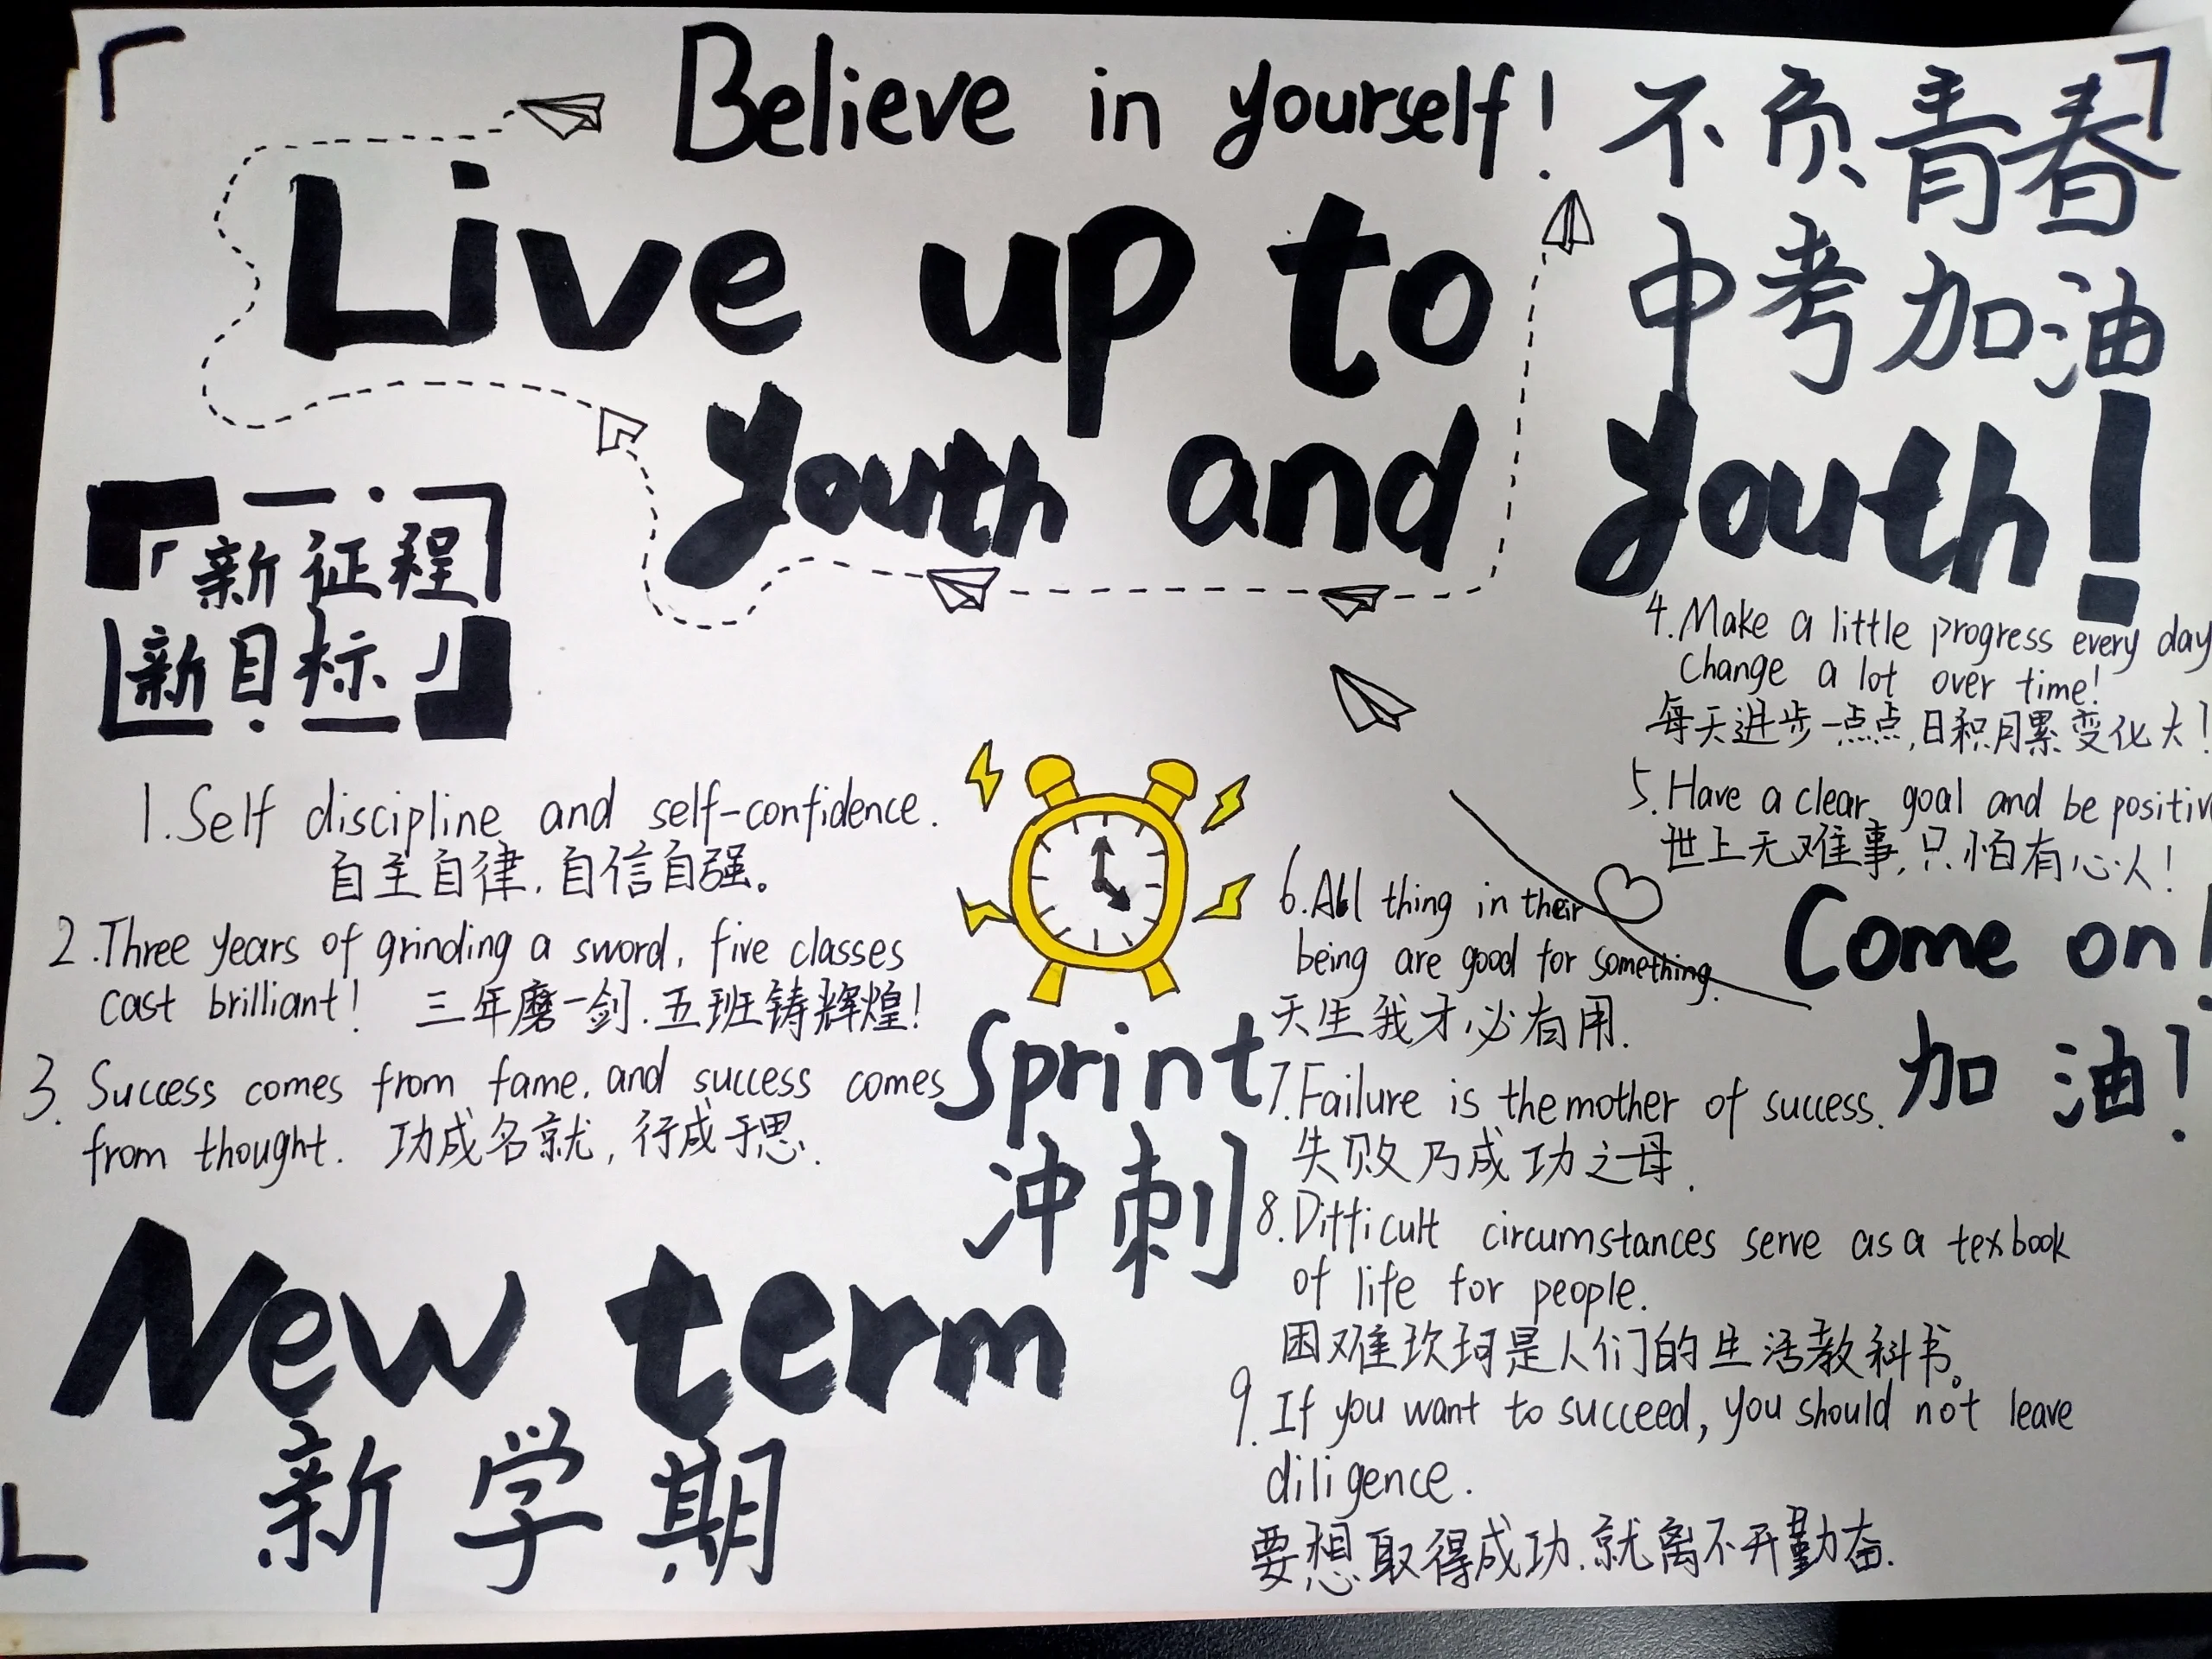 Believe in yourself!
不负青春
中考加油
Live up to
youth and youth!
「新征程
新目标」
1. Self discipline and self-confidence.
自主自律,自信自强。
2. Three years of grinding a sword, five classes
cast brilliant! 三年磨一剑.五班铸辉煌!
3. Success comes from fame, and success comes
from thought. 功成名就,行成于思.
New term
新学期
Sprint
冲刺
4. Make a little progress every day
Change a lot over time!
每天进步一点点,日积月累变化大!
5. Have a clear goal and be positiv
世上无难事,只怕有心人!
6. All thing in their
being are good for something.
天生我才必有用.
Come on!
加油!
7. Failure is the mother of success.
失败乃成功之母.
8. Difficult circumstances serve as a texbook
of life for people.
困难坎坷是人们的生活教科书。
9. If you want to succeed, you should not leave
diligence.
要想取得成功.就离不开勤奋.